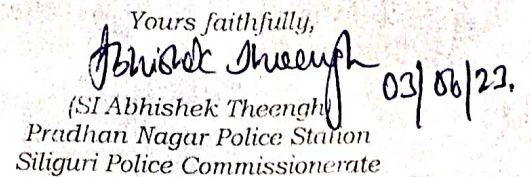 Yours faithfully,
Abhishek Theengh 03/06/23.
(SI Abhishek Theengh)
Pradhan Nagar Police Station
Siliguri Police Commissionerate